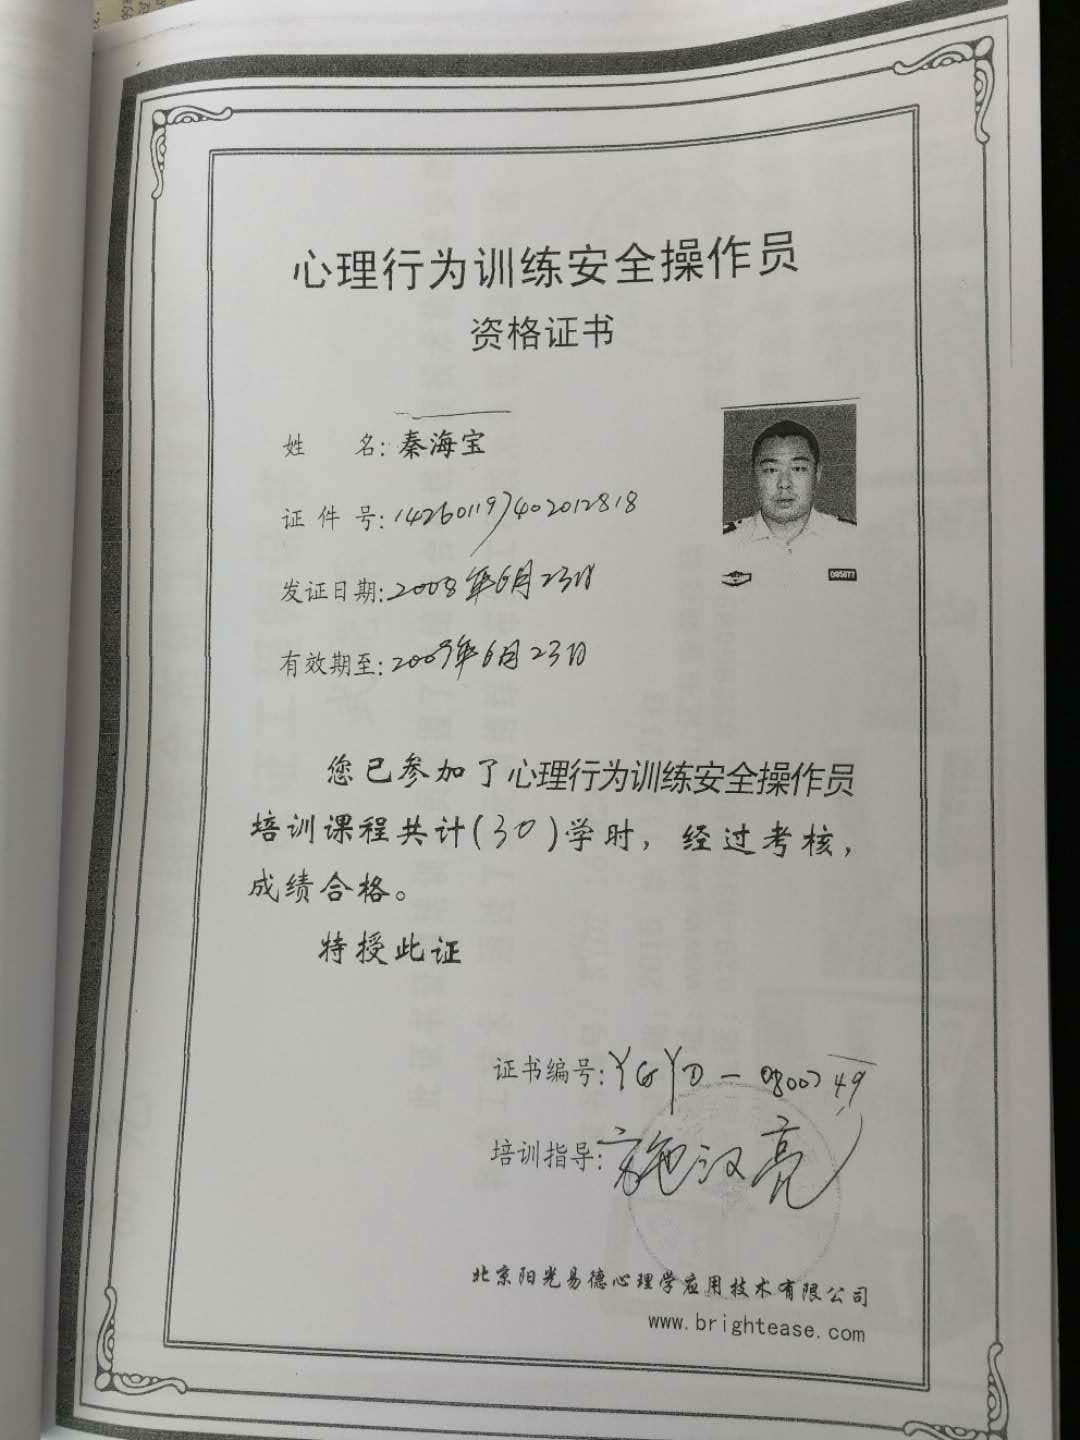 心理行为训练安全操作员
资格证书
姓 名：秦海宝
证件号：142601197402012818
发证日期：2008年6月23日
有效期至：2009年6月23日
095877
您已参加了心理行为训练安全操作员
培训课程共计（30）学时，经过考核，
成绩合格。
特授此证
证书编号：YGYD－0800749
培训指导：施汉亮
北京阳光易德心理学应用技术有限公司
www.brightease.com